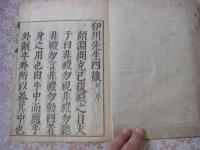 伊川先生四箴 并序
顏淵問克己復禮之目夫
子曰非禮勿視非禮勿聽
非禮勿言非禮勿動四者
身之用也由乎中而應乎
外制乎外所以養其中也